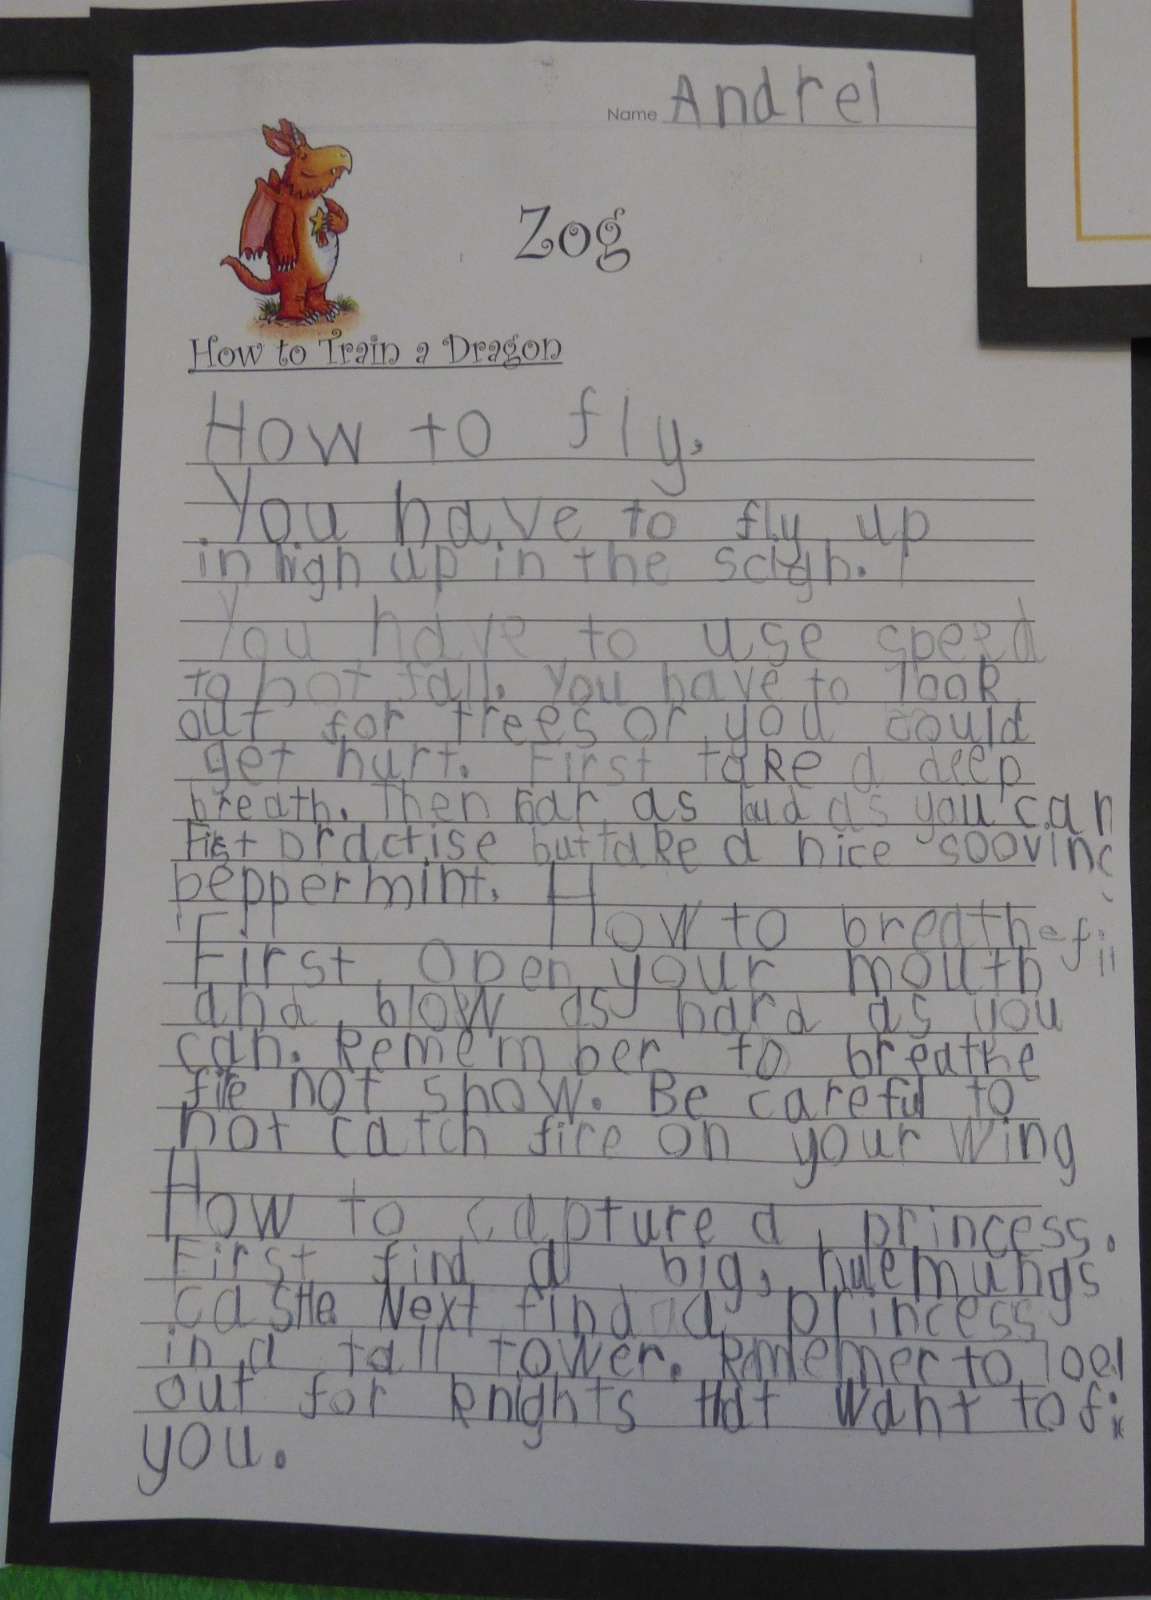 Name Andrei
Zog
How to Train a Dragon
How to fly.
You have to fly up
in high up in the scigh.
You have to use speed
to not fall. You have to look
out for trees or you could
get hurt. First take a deep
breath. Then as loud as you can
First practise but take a nice sooving
peppermint.
How to breathe
First open your mouth
and blow as hard as you
can. Remember to breathe
fire not snow. Be careful to
not catch fire on your wing
How to capture a princess.
First find a big,
castle Next find a princess
in a tall tower. to
out for knights that want to
you.